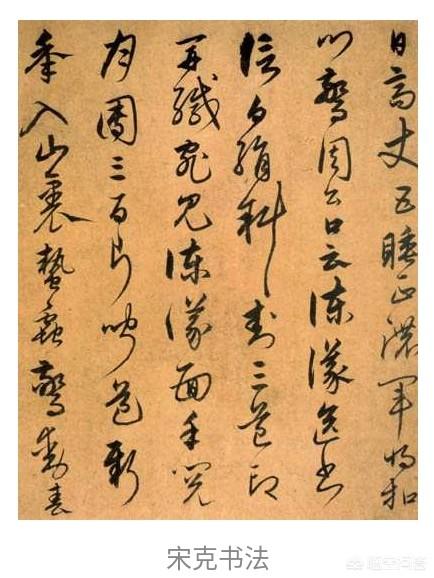 日高丈五睡正濃軍將扣
門驚周公口云諫議送書
信白絹斜封三道印
開緘宛見諫議面手閱
月團三百片聞道新
年入山裏蟄蟲驚動春
宋克书法
悟空问答